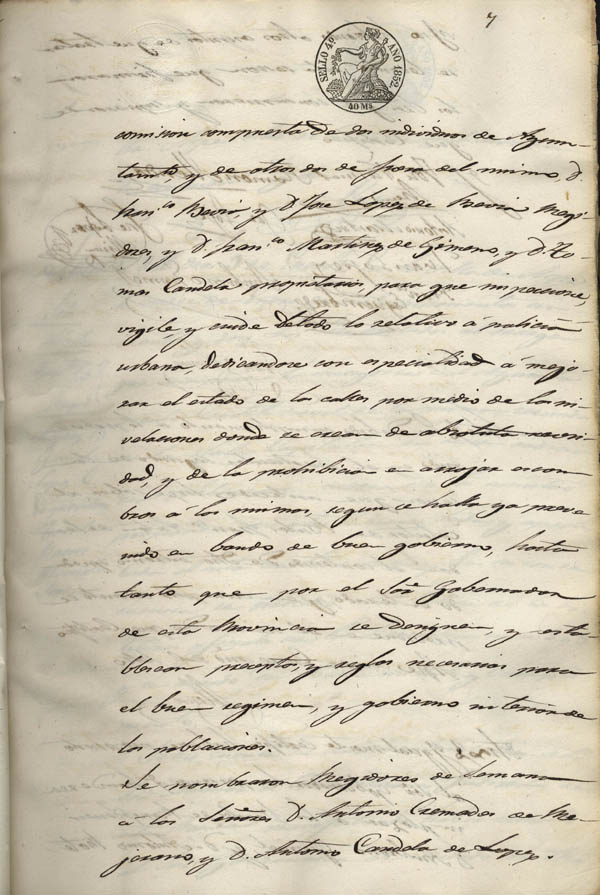 7
SELLO 4º AÑO 1852
40 Ms
comision compuesta de dos individuos de Ayun-
tamto, y de otros dos de fuera del mismo, D.
Franco Berio y D. Jose Lopez de Regi-
dores, y D. Franco Martinez de Gimeno, y D. To-
mas Candela propietarios, para que inspeccione,
vigile, y cuide de todo lo relativo á policia
urbana, dedicandose con especialidad á mejo-
rar el estado de las calles por medio de las ni-
velaciones donde se crean de absoluta necesi-
dad, y de la prohibicion en arrojar escom-
bros á las mismas, segun se halla ya preve
nido en bando de buen gobierno, hasta
tanto que por el Sor Gobernador
de esta Provincia se designen, y esta-
blescan preceptos, y reglas necesarias para
el buen regimen, y gobierno interior de
las poblaciones.
Se nombraron Regidores de Semana
á los Señores D. Antonio Cremades de
y D. Antonio Candela de Lopez.